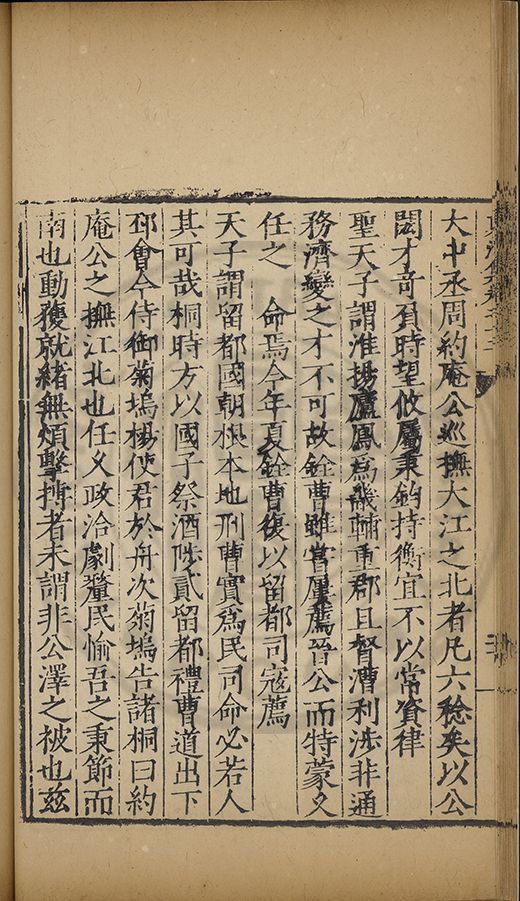 大中丞周約庵公巡撫大江之北者凡六稔矣以公
閎才奇負時望攸屬秉鈞持衡宜不以常資律
聖天子謂淮揚廬鳳為畿輔重郡且督漕利涉非通
務濟變之才不可故銓曹雖嘗屢薦晉公而特蒙久
任之　命焉今年夏銓曹復以留都司寇薦
天子謂留都國朝根本地刑曹實為民司命必若人
其可哉桐時方以國子祭酒陟貳留都禮曹道出下
邳會今侍御菊塢楊使君於舟次菊塢告諸桐曰約
庵公之撫江北也任久政洽劇釐民愉吾之秉節而
南也動獲就緒無煩擊搏者未謂非公澤之被也茲